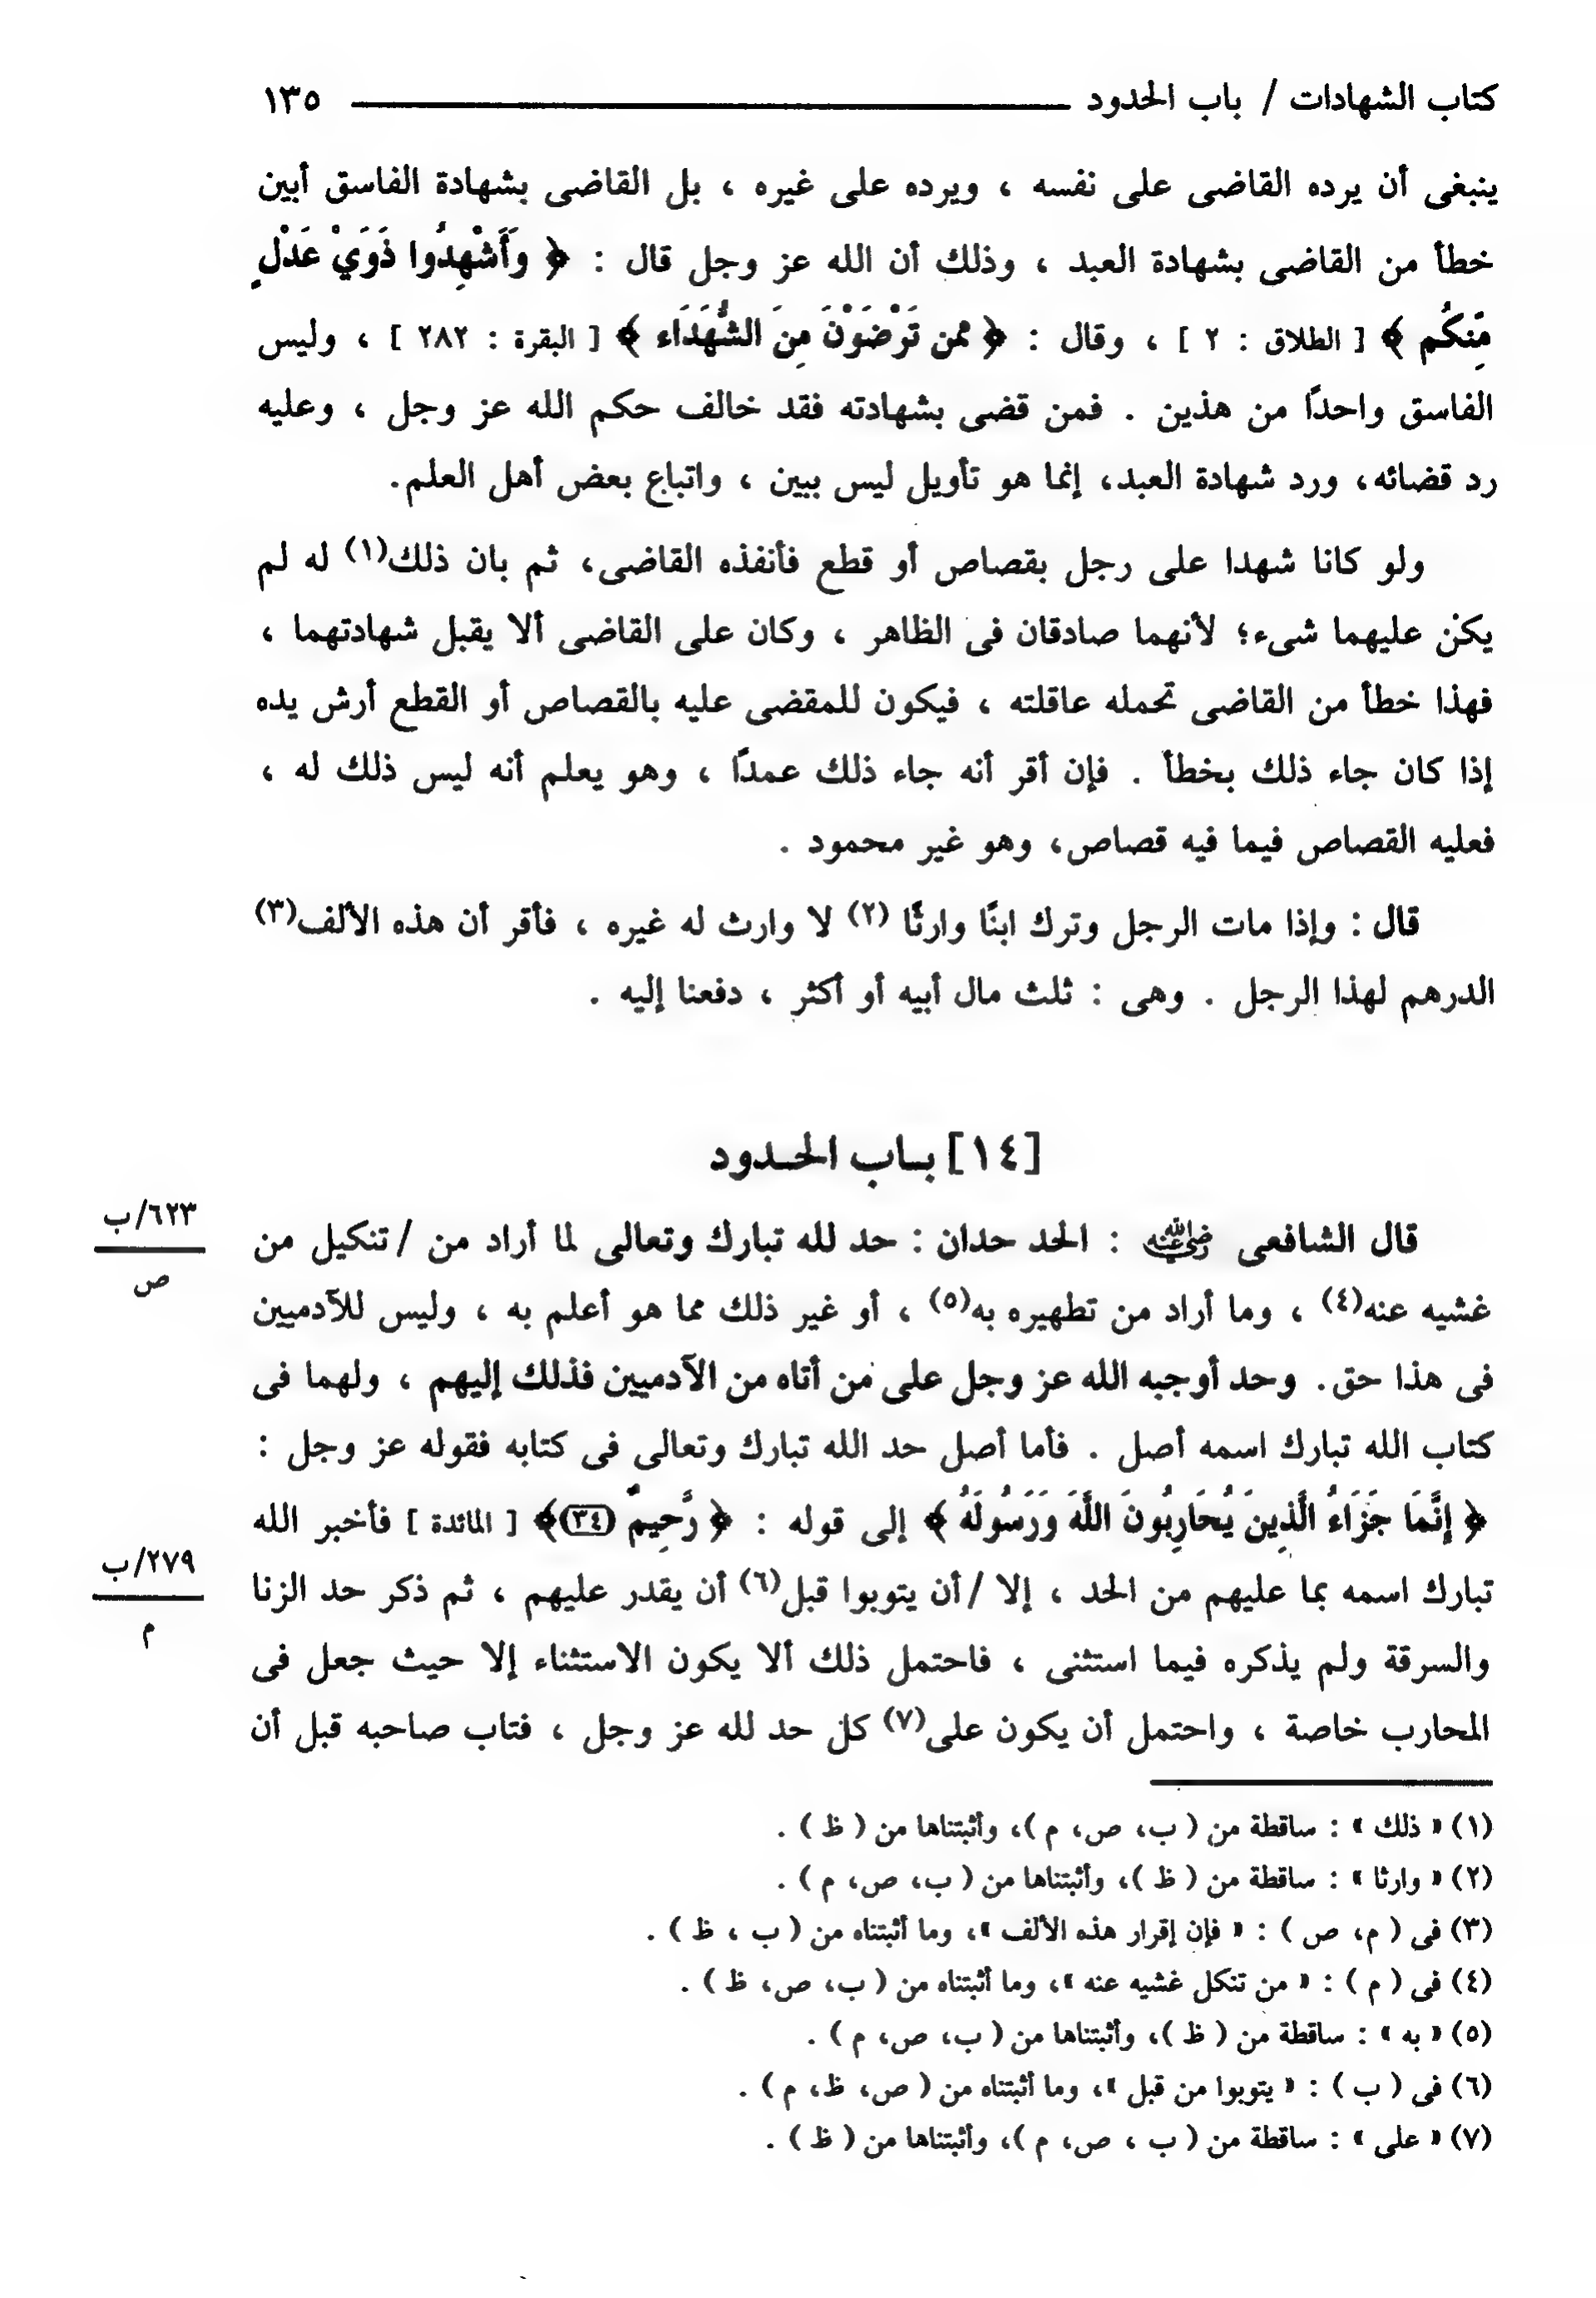 كتاب الشهادات / باب الحدود ــــــــــــــــــــ ١٣٥
ينبغى أن يرده القاضى على نفسه ، ويرده على غيره ، بل القاضى بشهادة الفاسق أبين
خطأ من القاضى بشهادة العبد ، وذلك أن الله عز وجل قال : ﴿ وَأَشْهِدُوا ذَوَيْ عَدْلٍ
مِّنكُم ﴾ [ الطلاق : ٢ ] ، وقال : ﴿ ممن تَرْضَوْنَ مِنَ الشُّهَدَاء ﴾ [ البقرة : ٢٨٢ ] ، وليس
الفاسق واحدًا من هذين . فمن قضى بشهادته فقد خالف حكم الله عز وجل ، وعليه
رد قضائه، ورد شهادة العبد، إنما هو تأويل ليس ببين ، واتباع بعض أهل العلم.
ولو كانا شهدا على رجل بقصاص أو قطع فأنفذه القاضى، ثم بان ذلك(١) له لم
يكن عليهما شىء؛ لأنهما صادقان فى الظاهر ، وكان على القاضى ألا يقبل شهادتهما ،
فهذا خطأ من القاضى تحمله عاقلته ، فيكون للمقضى عليه بالقصاص أو القطع أرش يده
إذا كان جاء ذلك بخطأ . فإن أقر أنه جاء ذلك عمدًا ، وهو يعلم أنه ليس ذلك له ،
فعليه القصاص فيما فيه قصاص، وهو غير محمود .
قال : وإذا مات الرجل وترك ابنًا وارثًا (٢) لا وارث له غيره ، فأقر أن هذه الألف(٣)
الدرهم لهذا الرجل . وهى : ثلث مال أبيه أو أكثر ، دفعنا إليه .
[١٤] بـاب الحـدود
قال الشافعى رضي الله عنه : الحد حدان : حد لله تبارك وتعالى لما أراد من / تنكيل من
٦٢٣/ب
ص
غشيه عنه(٤) ، وما أراد من تطهيره به(٥) ، أو غير ذلك مما هو أعلم به ، وليس للآدميين
فى هذا حق. وحد أوجبه الله عز وجل على من أتاه من الآدميين فذلك إليهم ، ولهما فى
كتاب الله تبارك اسمه أصل . فأما أصل حد الله تبارك وتعالى فى كتابه فقوله عز وجل :
﴿ إِنَّمَا جَزَاءُ الَّذِينَ يُحَارِبُونَ اللَّهَ وَرَسُولَهُ ﴾ إلى قوله : ﴿ رَّحِيمٌ (٣٤)﴾ [ المائدة ] فأخبر الله
تبارك اسمه بما عليهم من الحد ، إلا / أن يتوبوا قبل(٦) أن يقدر عليهم ، ثم ذكر حد الزنا
٢٧٩/ب
م
والسرقة ولم يذكره فيما استثنى ، فاحتمل ذلك ألا يكون الاستثناء إلا حيث جعل فى
المحارب خاصة ، واحتمل أن يكون على(٧) كل حد لله عز وجل ، فتاب صاحبه قبل أن
(١) « ذلك » : ساقطة من ( ب، ص، م )، وأثبتناها من ( ظ ) .
(٢) « وارثا » : ساقطة من ( ظ )، وأثبتناها من ( ب، ص، م ) .
(٣) فى ( م، ص ) : « فإن إقرار هذه الألف »، وما أثبتناه من ( ب ، ظ ) .
(٤) فى ( م ) : « من تنكل غشيه عنه »، وما أثبتناه من ( ب، ص، ظ ) .
(٥) « به » : ساقطة من ( ظ )، وأثبتناها من ( ب، ص، م ) .
(٦) فى ( ب ) : « يتوبوا من قبل »، وما أثبتناه من ( ص، ظ، م ) .
(٧) « على » : ساقطة من ( ب ، ص، م )، وأثبتناها من ( ظ ) .